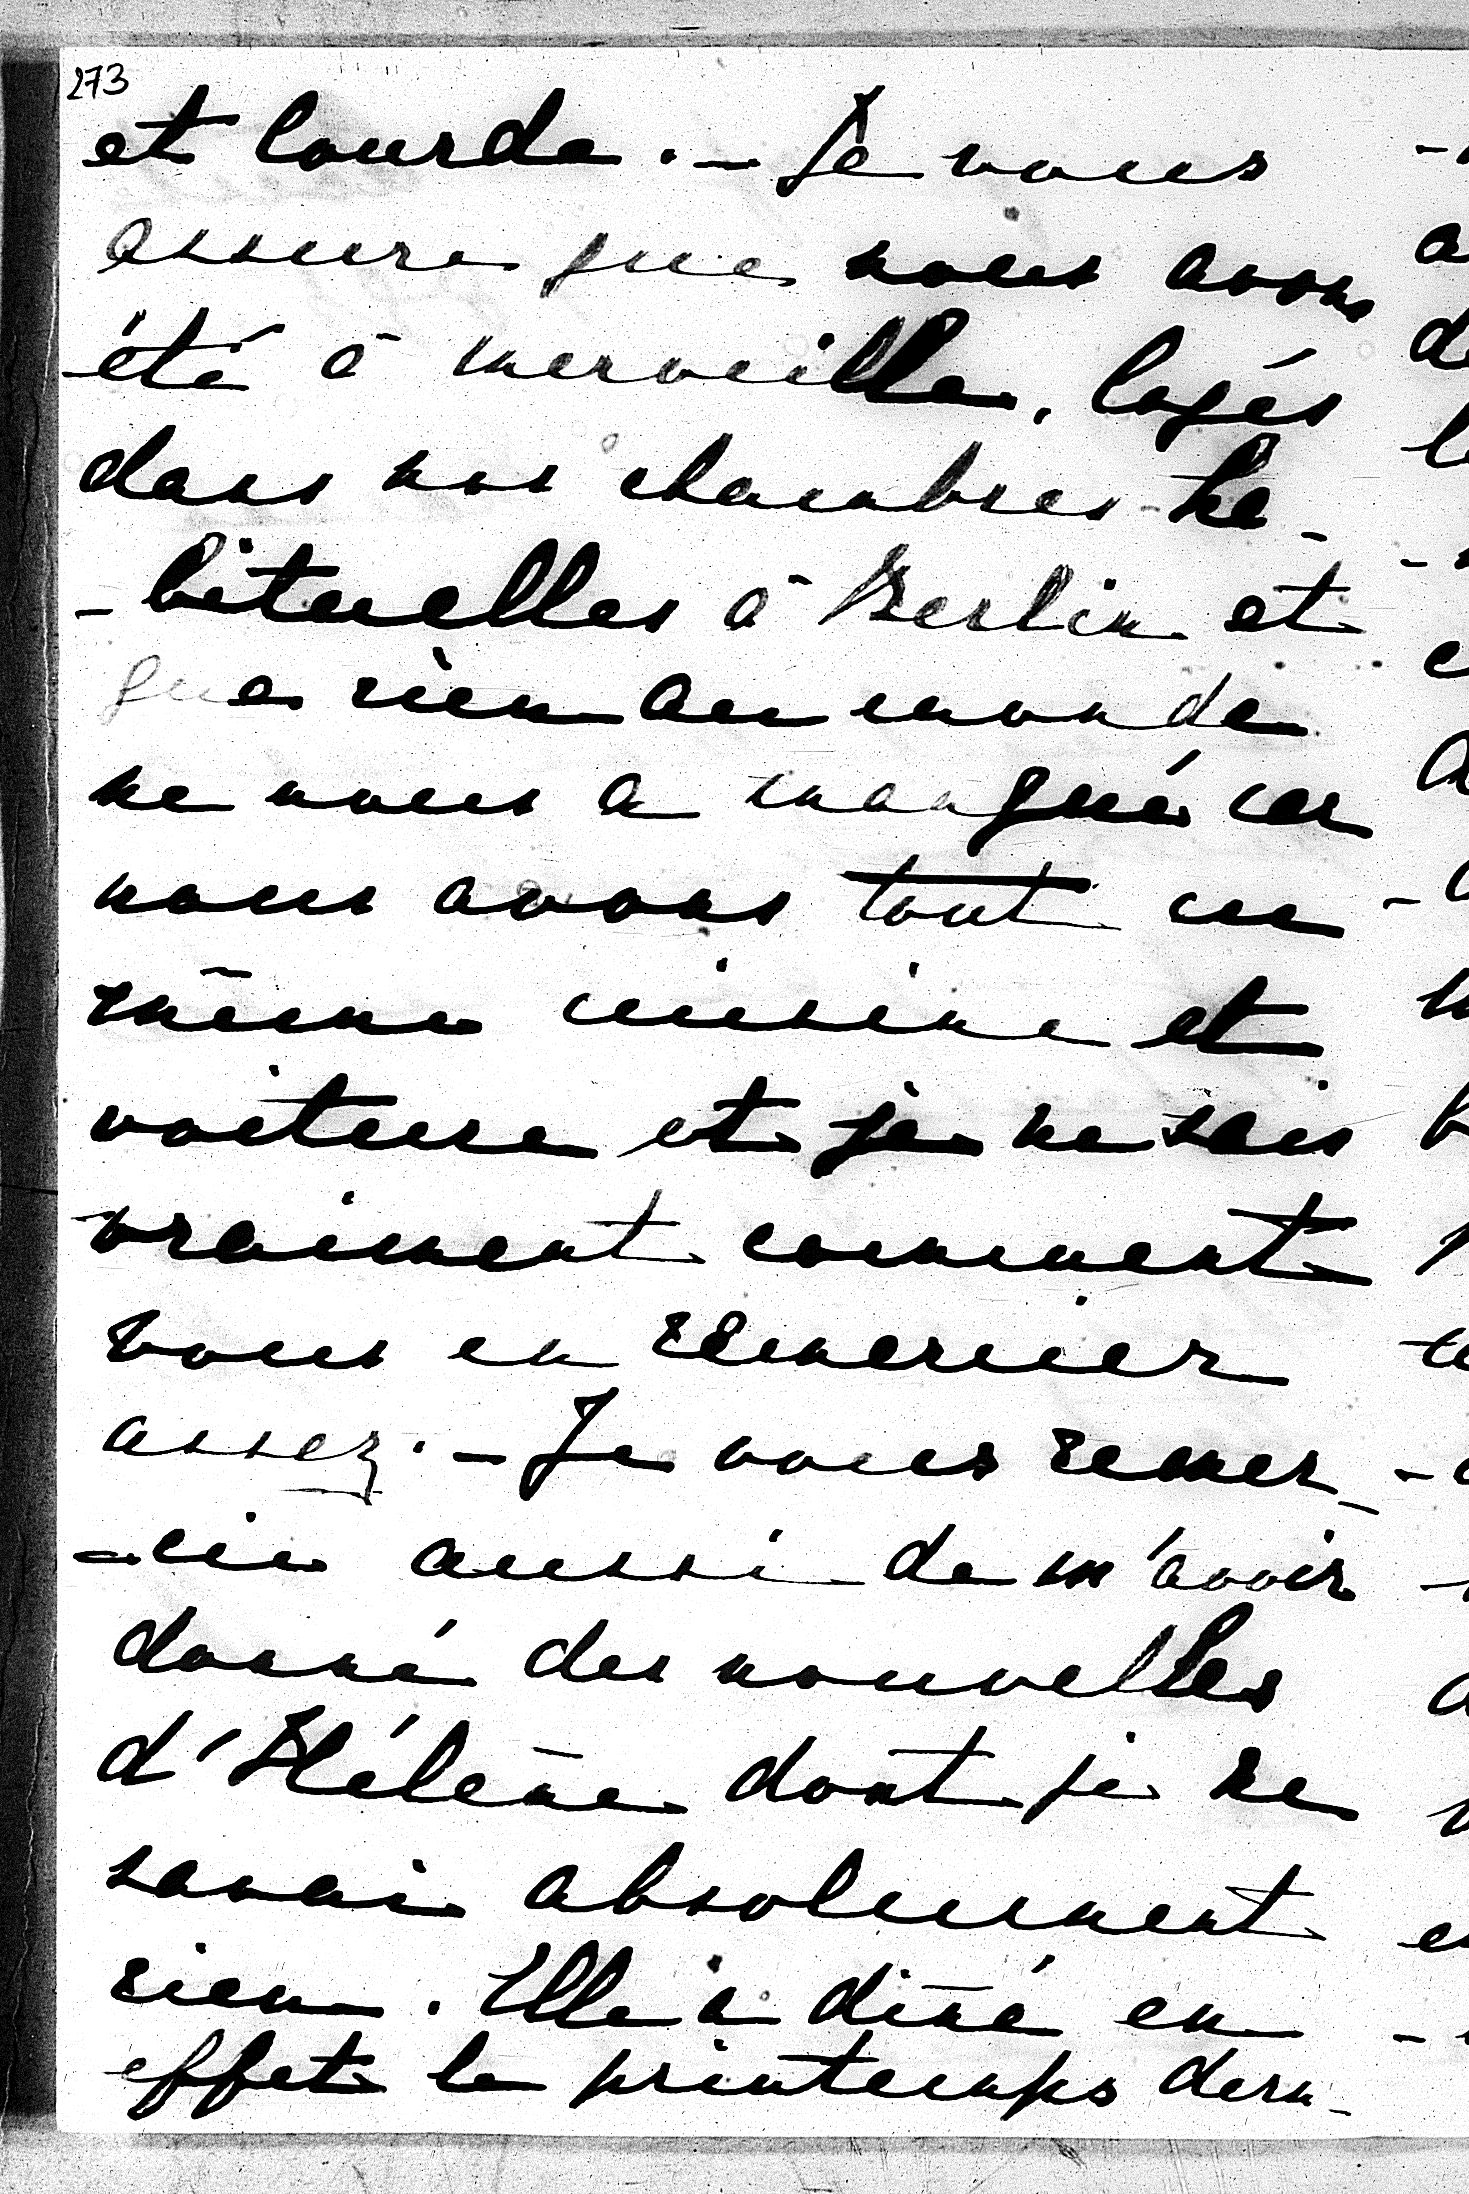 273
et lourde. — Je vous
assure que nous avons
été à merveille, logés
dans nos chambres ha-
-bituelles à Berlin et
que rien au monde
ne nous a manqué car
nous avons tout eu
même cuisine et
voiture et je ne sais
vraiment comment
vous en remercier
assez. — Je vous remer-
-cie aussi de m'avoir
donné des nouvelles
d'Hélène dont je ne
savai absolument
rien. Elle a diné en
effet le printemps dern-